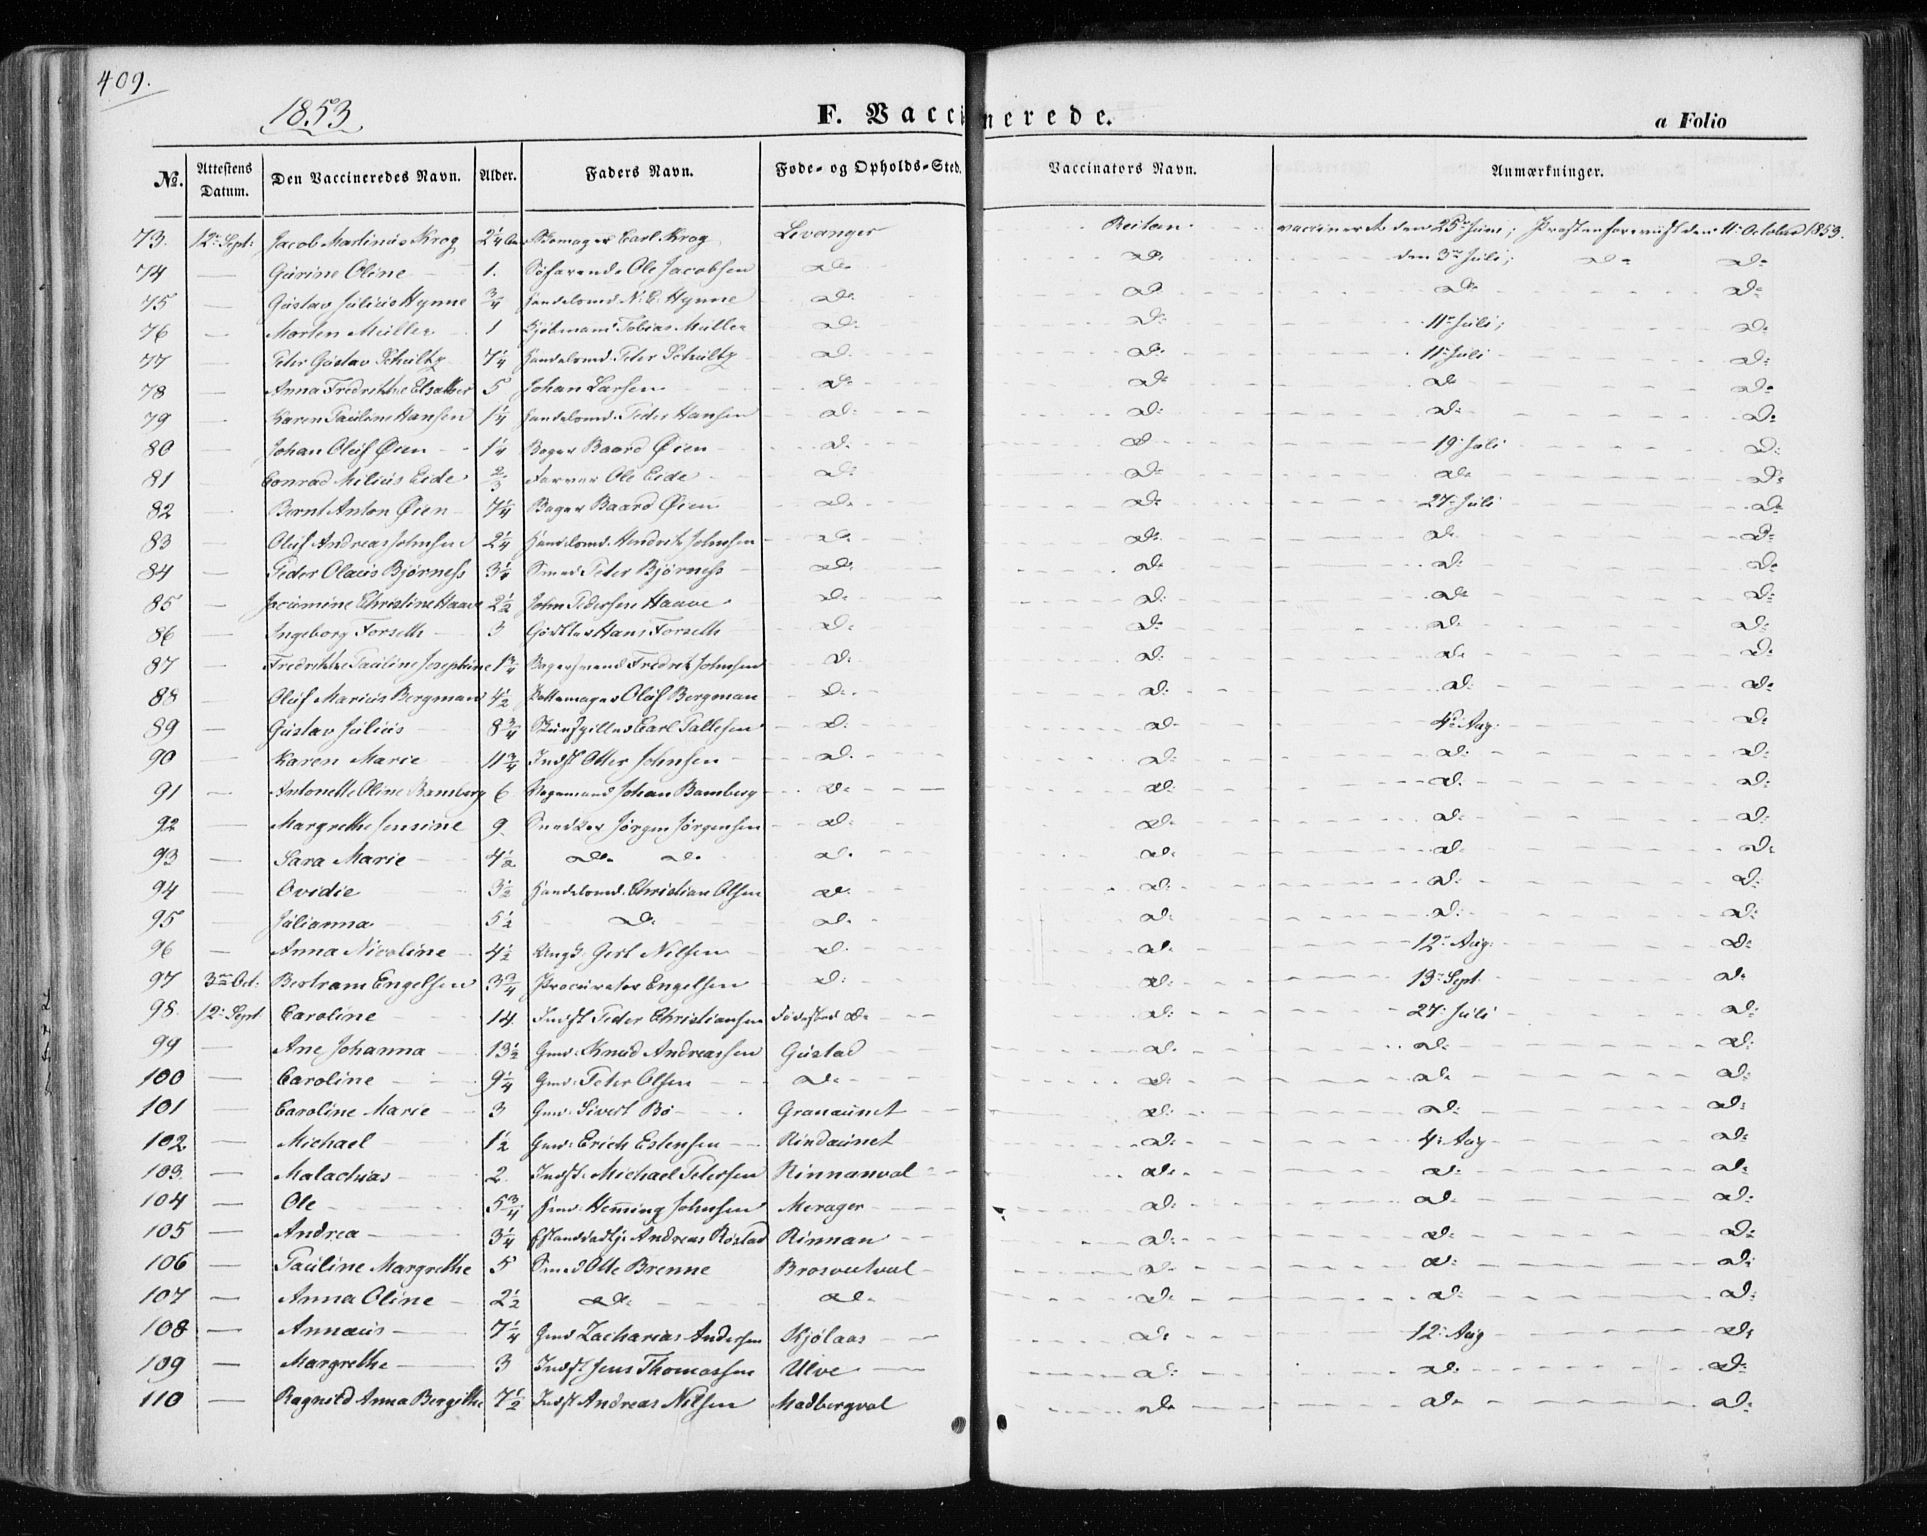 409.
1853
F. Vaccinerede.
a Folio
No. Attestens Datum. Den Vaccineredes Navn. Alder. Faders Navn. Føde- og Opholds-Sted. Vaccinators Navn. Anmærkninger.
73. 12te Sept: Jacob Martinus Krog 2 1/4 Skomager Carl Krog Levanger Reitan vaccineret den 25de Juni; den 11te October 1853.
74 — Gurine Oline 1. Søfarende Ole Jacobsen do do den 3die Juli; do do
75 — Gustav Julius Hynne 3/4 Handelsmd. N. E. Hynne do do do do
76 — Morten Müller 1 Kjøbmand Tobias Müller do do 11te Juli; do
77 — Peter Gustav Schultz 7 1/4 Handelsmd. Peter Schultz do do 11te Juli do
78 — Anna Fredrikke 5 Johan Larsen do do do do
79 — Karen Pauline Hansen 1 1/4 Handelsmd. Peder Hansen do do do do
80 — Johan Oluf Øien 1 1/4 Bager Baard Øien do do 19 Juli do
81 — Conrad Milius Eide 2/3 Farver Ole Eide do do do do
82 — Bernt Anton Øien 7 1/4 Bager Baard Øien do do 27 Juli do
83 — Oluf Andreas Johnsen 2 1/4 Handelsmd. Hendrik Johnsen do do do do
84 — Peder Olaus Bjørness 3 1/4 Smed Peter Bjørness do do do do
85 — Jacumine Christine Haave 2 1/2 John Pedersen Haave do do do do
86 — Ingeborg Forseth 3 Gørtler Hans Forseth do do do do
87 — Fredrikke Pauline Josephine 1 3/4 Bagersvend Fredrik Johnsen do do do do
88 — Oluf Marius Bergman 4 1/2 Pottemager Oluf Bergman do do do do
89 — Gustav Julius 8 3/4 Carl Pallesen do do 4de Aug. do
90 — Karen Marie 11 3/4 Indst Otter Johnsen do do do do
91 — Antonette Oline Bamberg 6 Vognmand Johan Bamberg do do do do
92 — Margrethe Jensine 9. Snedker Jørgen Jørgensen do do do do
93 — Sara Marie 4 1/2 do do do do do do
94 — Ovidie 3 1/2 Handelsmd. Christian Olsen do do do do
95 — Julianna 5 1/2 do do do do do
96 — Anna Nicoline 4 1/2 Gert Nilsen do do 12te Aug. do
97 3die Oct. Bertram Engelsen 3 3/4 Procurator Engelsen do do 13de Sept. do
98. 12te Sept Caroline 14. Indst Peder Christiansen Fødested do do 27 Juli do
99 — Ane Johanna 13 1/2 Gmd. Knud Andreassen Gustad do do do
100 — Caroline 9 1/4 Gmd. Peter Olsen do do do do
101 — Caroline Marie 3 Gmd. Sivert Bo Granaunet do do do
102 — Michael 1 1/2 Gmd. Erich Estensen Rindaunet do 4de Aug do
103 — Malachias 2. Indst. Michael Petersen Rinnanval do do do
104 — Ole 5 3/4 Gmd. Heming Johnsen Merager do do do
105 — Andrea 3 1/4 Andreas Røstad Rinnan do do do
106 — Pauline Margrethe 5 Smed Otte Brenne do do do
107 — Anna Oline 2 1/2 do do do do do
108 — Annæus 7 1/4 Gmd Zacharias Andersen Kjølaas do 12te Aug do
109 — Margrethe 3 Indst Jens Thomassen Ulve do do do
110 — Ragnild Anna Bergithe 7 1/2 Indst Andreas Nilsen Madbergval do do do